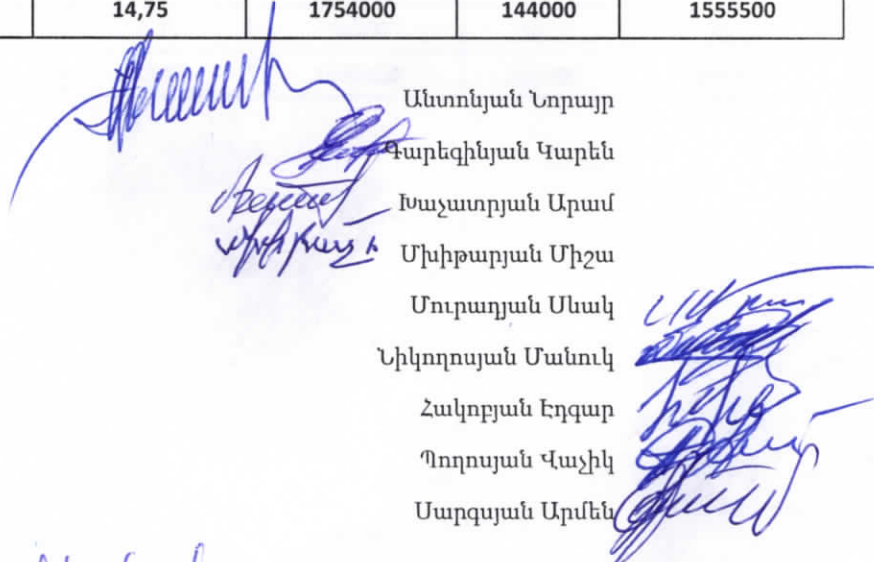 14,75 1754000 144000 1555500
Անտոնյան Նորայր
Գարեգինյան Կարեն
Խաչատրյան Արամ
Մխիթարյան Միշա
Մուրադյան Սևակ
Նիկողոսյան Մանուկ
Հակոբյան Էդգար
Պողոսյան Վաչիկ
Սարգսյան Արմեն